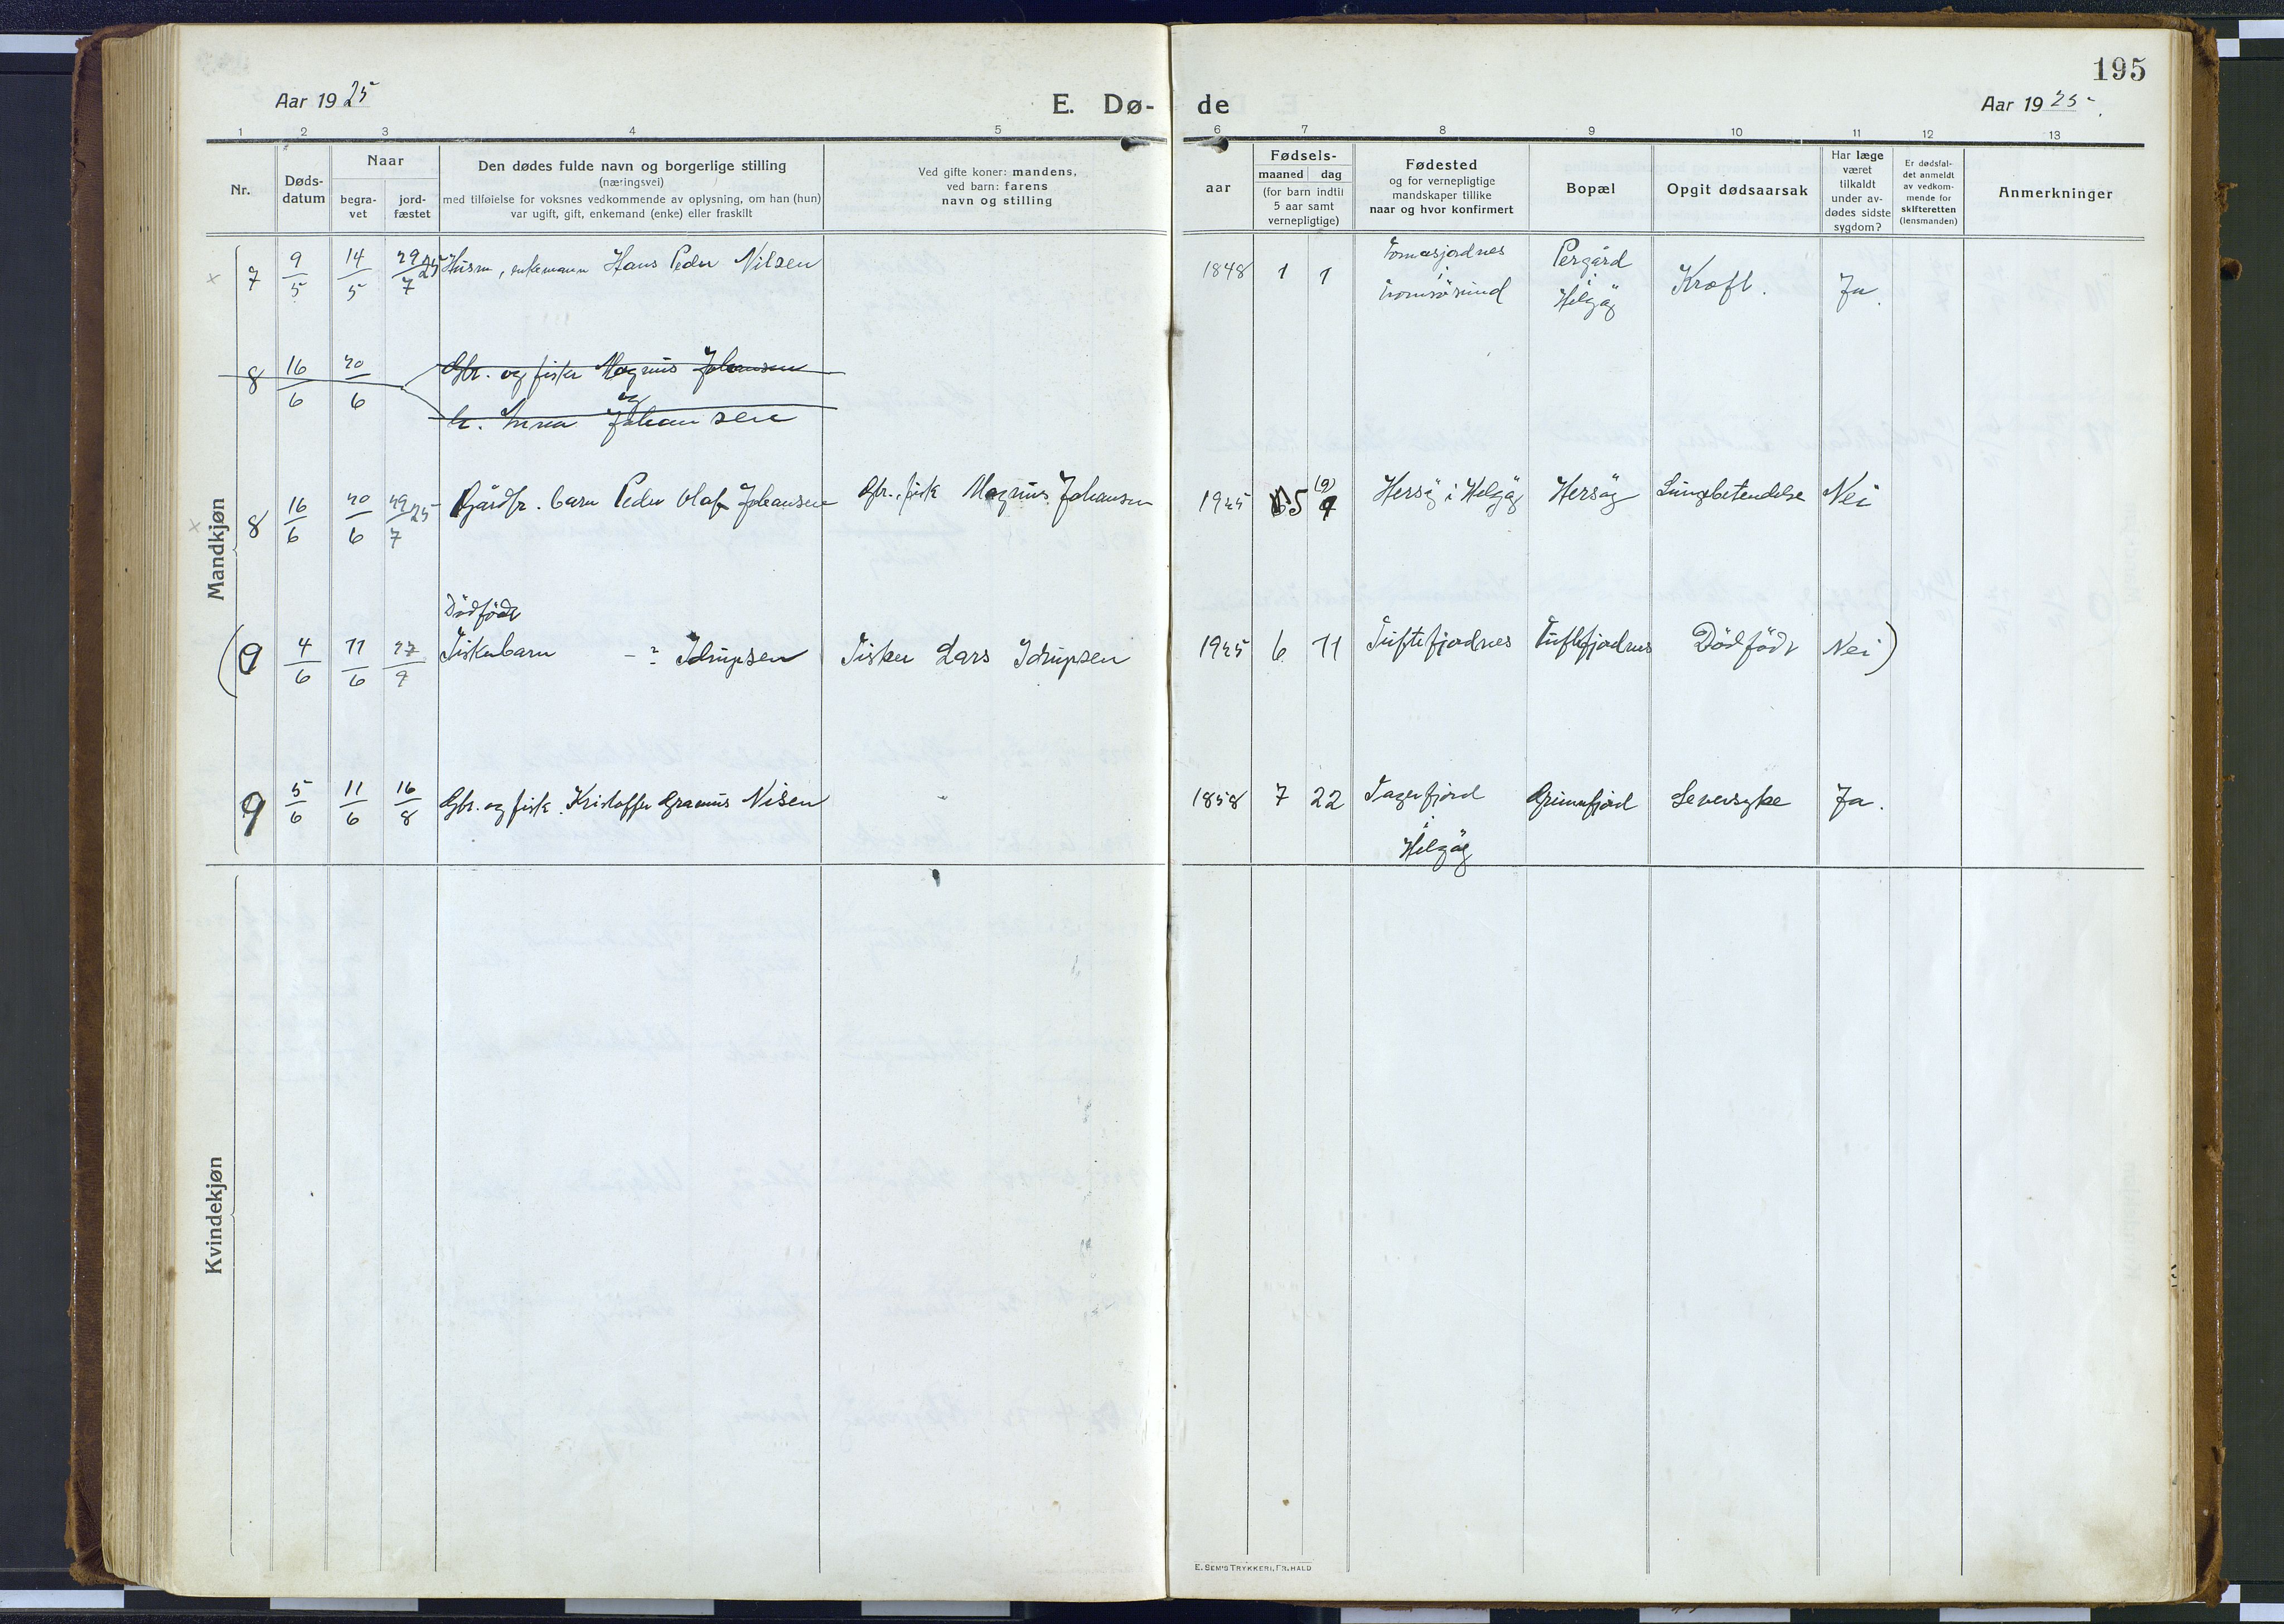 195
Aar 1925
E. Dø-
de
Aar 1925.
1 2 3 4 5 6 7 8 9 10 11 12 13
Nr.
Døds-
datum
Naar
begra-
vet
jord-
fæstet
Den dødes fulde navn og borgerlige stilling
(næringsvei)
med tilføielse for voksnes vedkommende av oplysning, om han (hun)
var ugift, gift, enkemand (enke) eller fraskilt
Ved gifte koner: mandens,
ved barn: farens
navn og stilling
aar
Fødsels-
maaned dag
(for barn indtil
5 aar samt
vernepligtige)
Fødested
og for vernepligtige
mandskaper tillike
naar og hvor konfirmert
Bopæl
Opgit dødsaarsak
Har læge
været
tilkaldt
under av-
dødes sidste
sygdom?
Er dødsfal-
det anmeldt
av vedkom-
mende for
skifteretten
(lensmanden)
Anmerkninger
Mandkjøn
7 9/5 14/5 29/7 25 Husm, enkemann Hans Peder Nilsen 1848 1 1 Tomasjordnes i Tromsøsund Helgøy Kræft. Ja.
8 16/6 20/6 Gbr. og fisker Magnus Johansen
og
Johansen
8 16/6 20/6 29/7 25 Gårdbr. barn Peder Olaf Johansen Gbr., fisk Magnus Johansen 1925 5 (9) 9 Hersøy i Helgøy Hersøy Lungebetendelse Nei
Dødfødt
(9 4/6 11/6 Fiskerbarn - ? Idrupsen Fisker Lars Idrupsen 1925 6 11 Tuftefjordnes Tuftefjordnes Dødfødt Nei)
9 5/6 11/6 16/8 Gbr. og fisk. Kristoffer Nilsen 1858 7 22 i Helgøy Grunnfjord Leversyke Ja.
Kvindekjøn
E. SEM'S TRYKKERI, FR.HALD